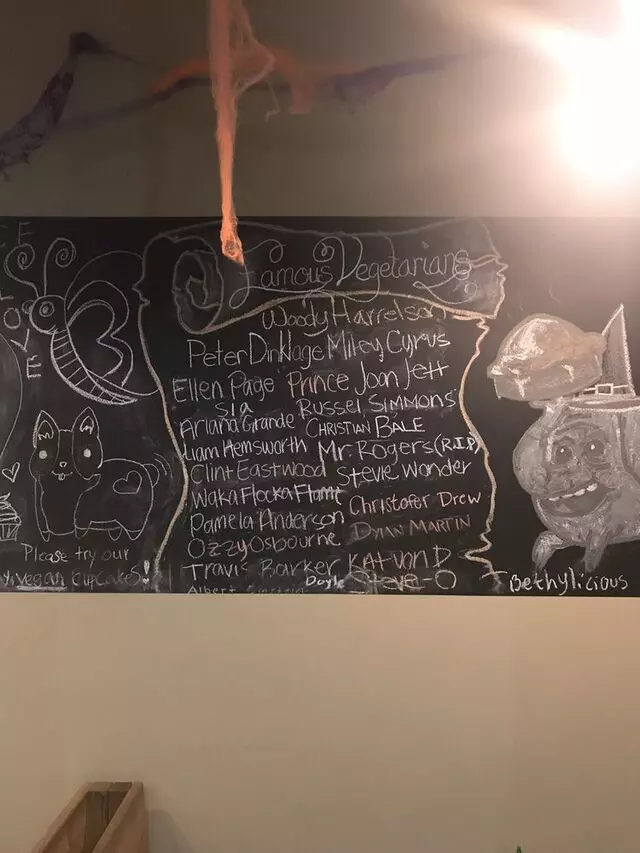 Famous Vegetarians
Woody Harrelson
Peter Dinklage Miley Cyrus
Ellen Page Prince Joan Jett
Sia Russel Simmons
Ariana Grande CHRISTIAN BALE
Liam Hemsworth Mr. Rogers (R.I.P)
Clint Eastwood Stevie Wonder
Waka Flocka Flame
Pamela Anderson Christofer Drew
Ozzy Osbourne DYlAN MARTIN
Travis Barker KAT VON D
Doyle Steve-O
Albert
Please try our
Vegan CupCakes!
Bethylicious